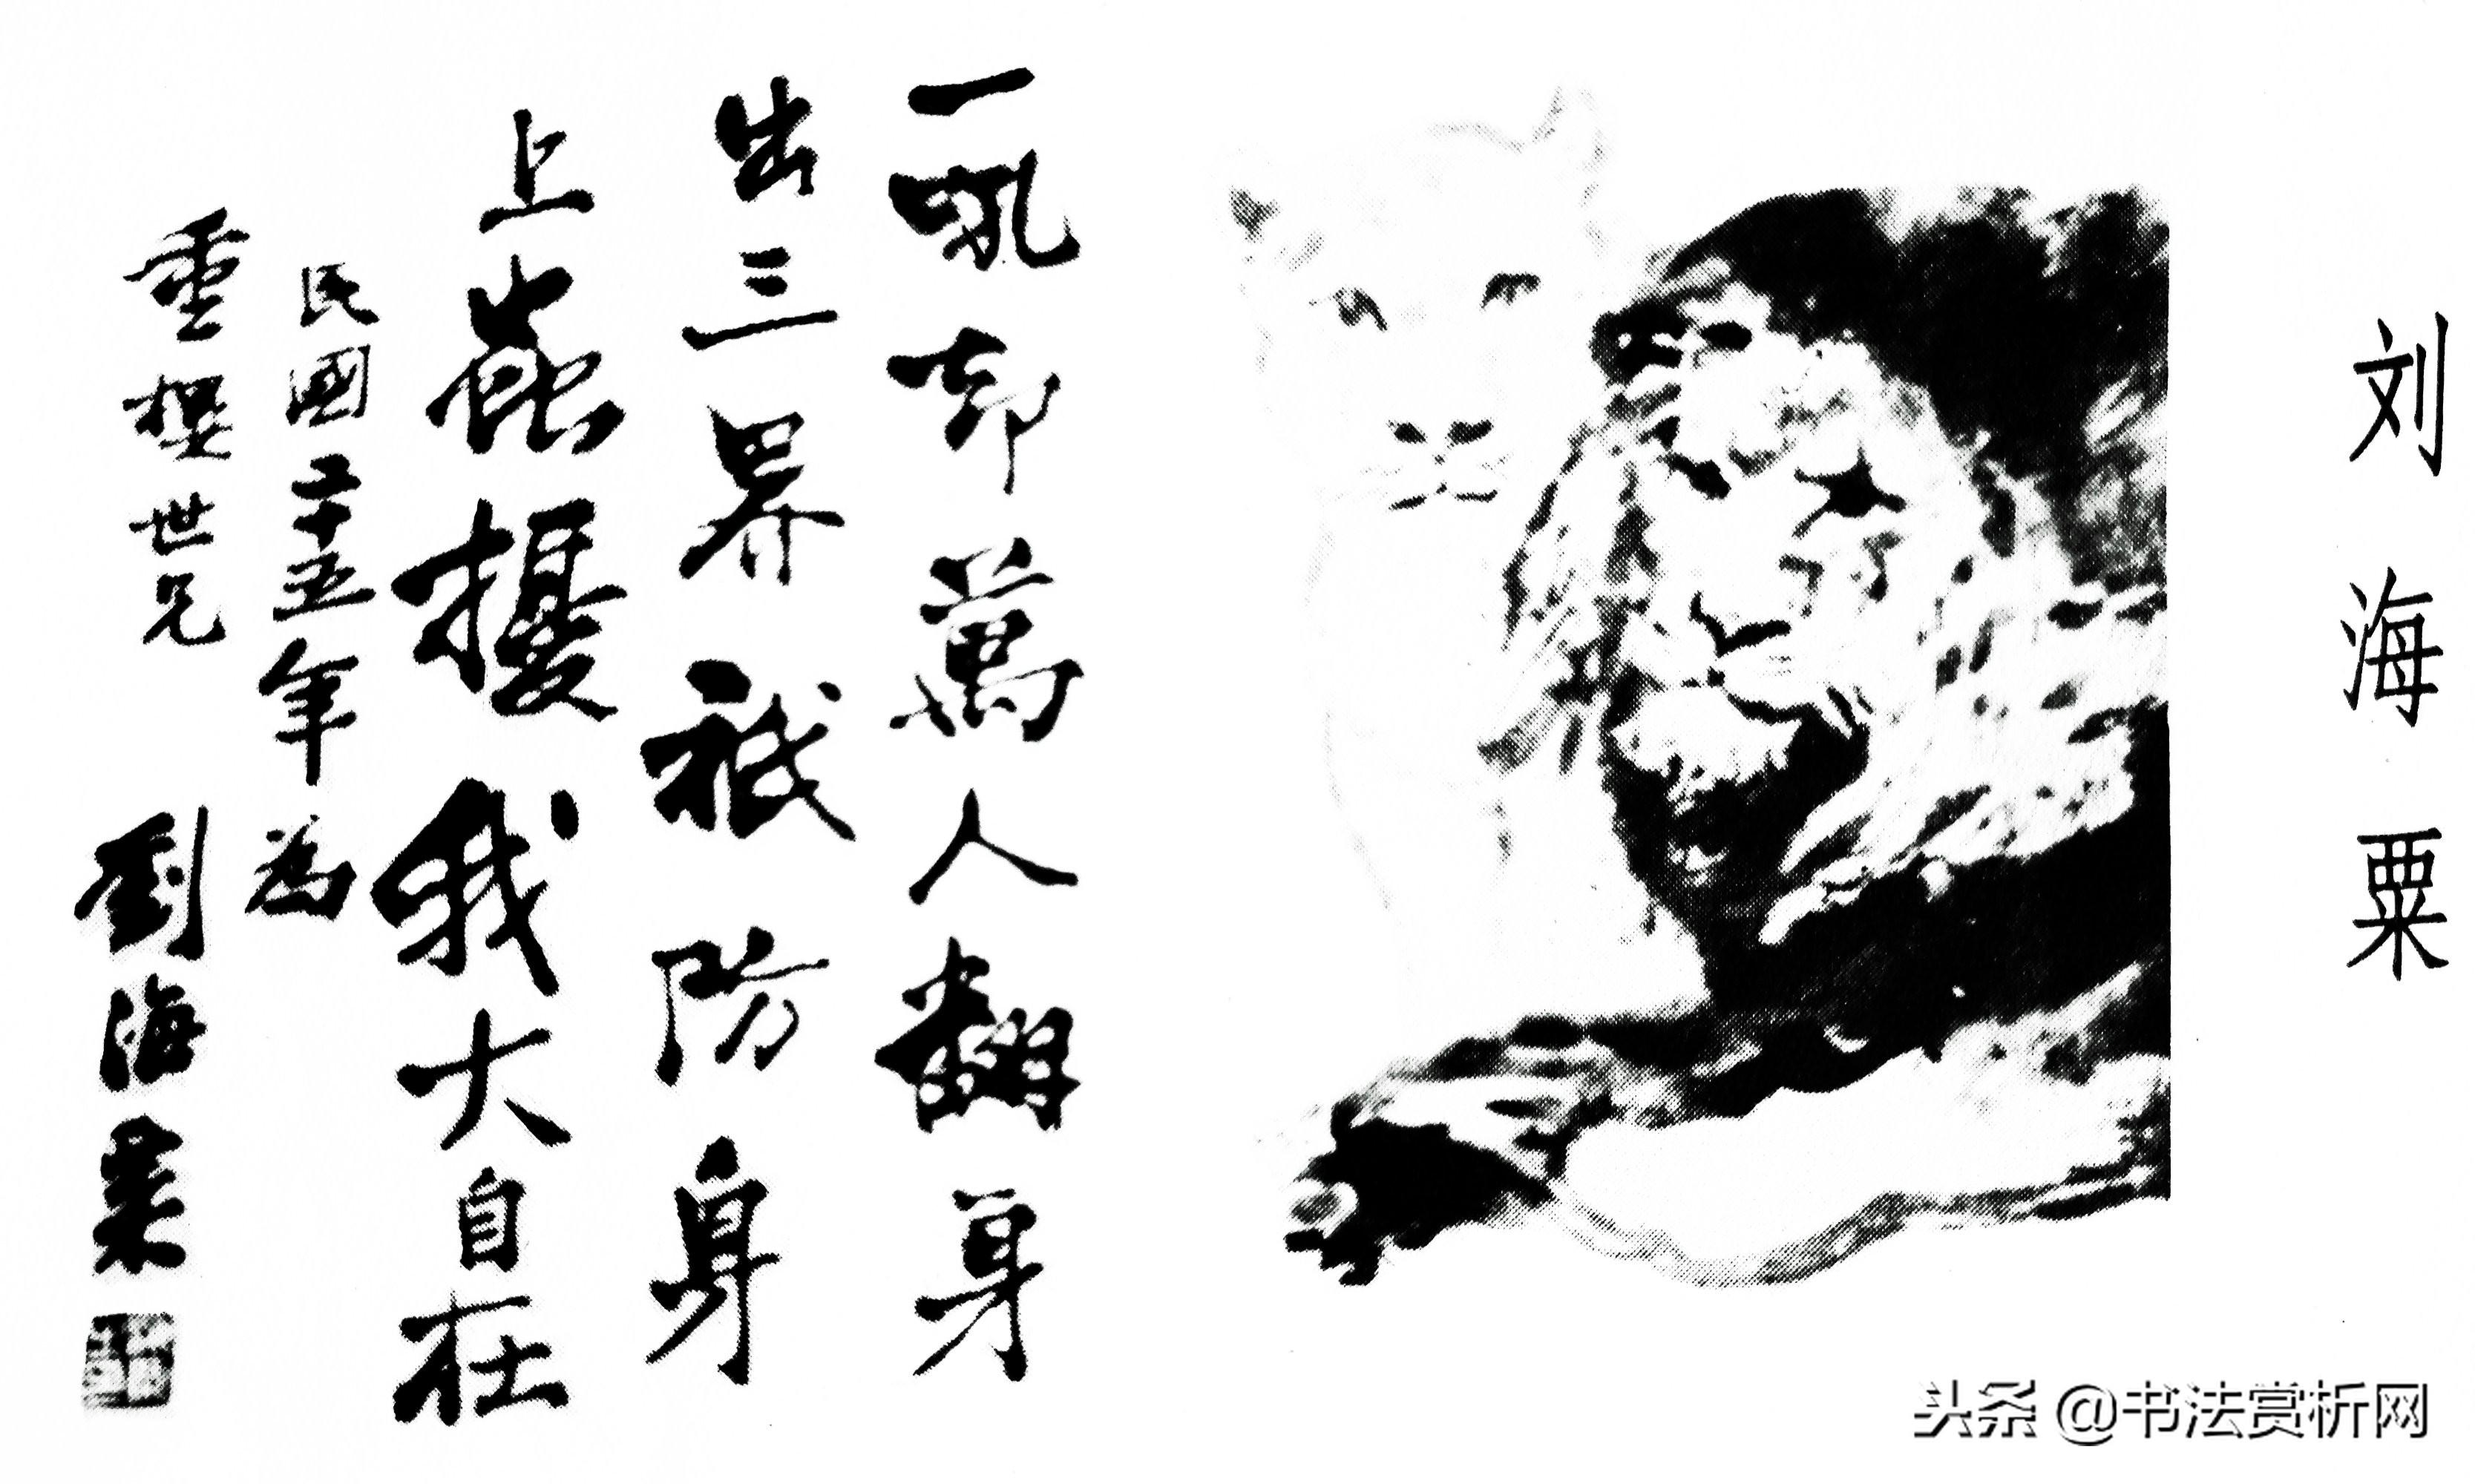 刘海粟
一吼却萬人翻身
出三界祗防身
上擾我大自在
民國二十五年為
重世兄 劉海粟
头条 @书法赏析网